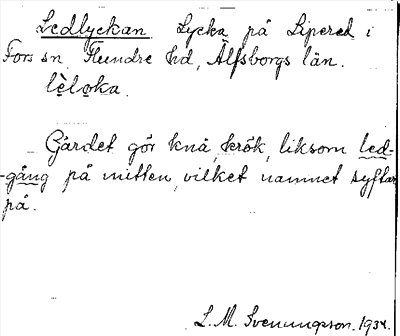 Ledlyckan Lycka på Lipered i
Fors sn Flundre hd, Älfsborgs län.
lèloka.
Gärdet gör knä, krök, liksom led-
-gång på mitten, vilket namnet syftar
på.
L. M. Svenungsson. 1934.